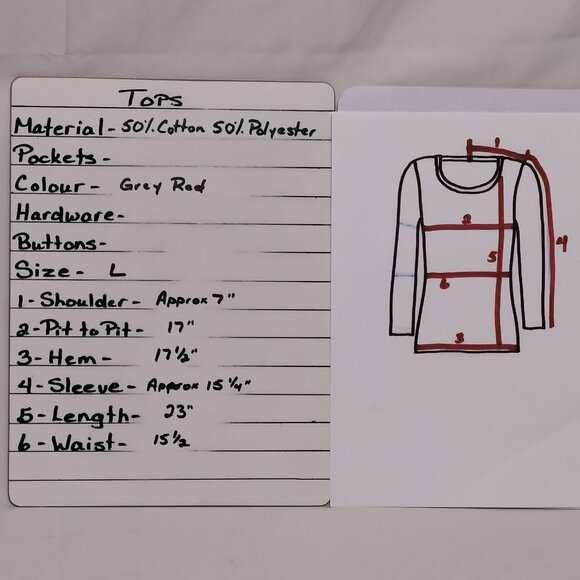 Tops
Material - 50% Cotton 50% Polyester
Pockets -
Colour - Grey Red
Hardware-
Buttons-
Size - L
1 - Shoulder - Approx 7"
2 - Pit to Pit - 17"
3 - Hem - 17 1/2"
4 - Sleeve - Approx 15 1/4"
5 - Length - 23"
6 - Waist - 15 1/2
1
2
4
5
6
3